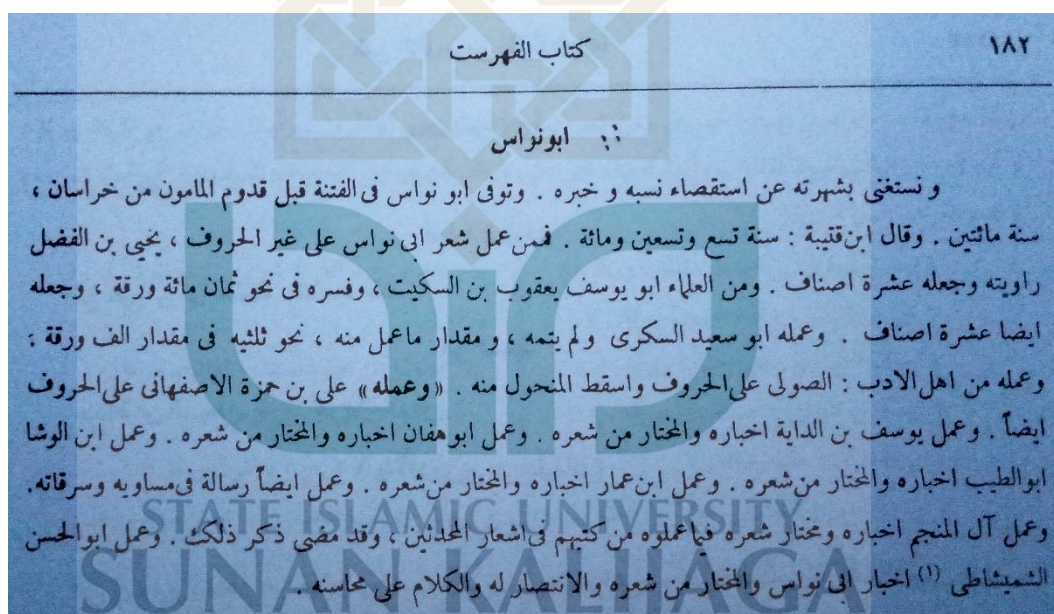 كتاب الفهرست ١٨٢
ابونواس
و نستغنى بشهرته عن استقصاء نسبه و خبره . وتوفى ابو نواس فى الفتنة قبل قدوم المامون من خراسان ،
سنة مائتين . وقال ابن قتيبة : سنة تسع وتسعين ومائة . فمن عمل شعر ابى نواس على غير الحروف ، يحيى بن الفضل
راويته وجعله عشرة اصناف . ومن العلماء ابو يوسف يعقوب بن السكيت ، وفسره فى نحو ثمان مائة ورقة ، وجعله
ايضا عشرة اصناف . وعمله ابو سعيد السكرى ولم يتمه ، و مقدار ماعمل منه ، نحو ثلثيه فى مقدار الف ورقة :
وعمله من اهل الادب : الصولى على الحروف واسقط المنحول منه . «وعمله» على بن حمزة الاصفهانى على الحروف
ايضاً . وعمل يوسف بن الداية اخباره والمختار من شعره . وعمل ابو هفان اخباره والمختار من شعره . وعمل ابن الوشا
ابو الطيب اخباره والمختار من شعره . وعمل ابن عمار اخباره والمختار من شعره . وعمل ايضاً رسالة فى مساويه وسرقاته.
وعمل آل المنجم اخباره ومختار شعره فيما عملوه من كتبهم فى اشعار المحدثين ، وقد مضى ذكر ذلك . وعمل ابو الحسن
الشميشاطى (١) اخبار ابى نواس والمختار من شعره والانتصار له والكلام على محاسنه .
STATE ISLAMIC UNIVERSITY
SUNAN KALIJAGA